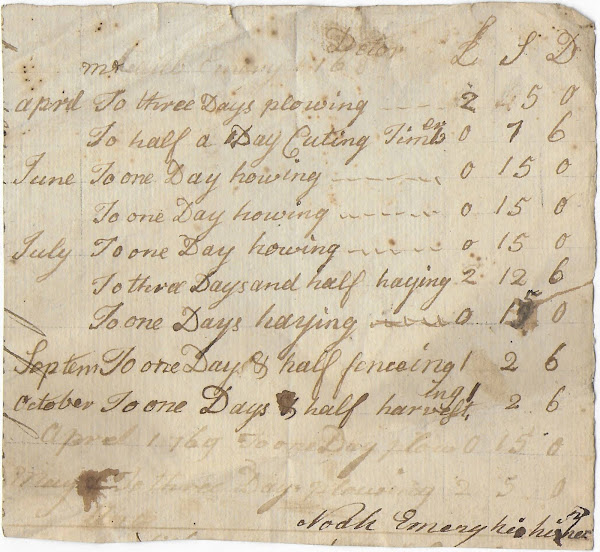 Detor £ S D
mr Emery 176
aprel To three Days plowing 2 5 0
To half a Day Cuting Timber 0 7 6
June To one Day howing 0 15 0
To one Day howing 0 15 0
July To one Day howing 0 15 0
To three Days and half haying 2 12 6
To one Days haying 0 15 0
Septem To one Day & half fenceing 1 2 6
October To one Days & half harvesting 1 2 6
Aprel 1769 To one Day plow 0 15 0
May To three Days plowing 2 5 0
Noah Emery his